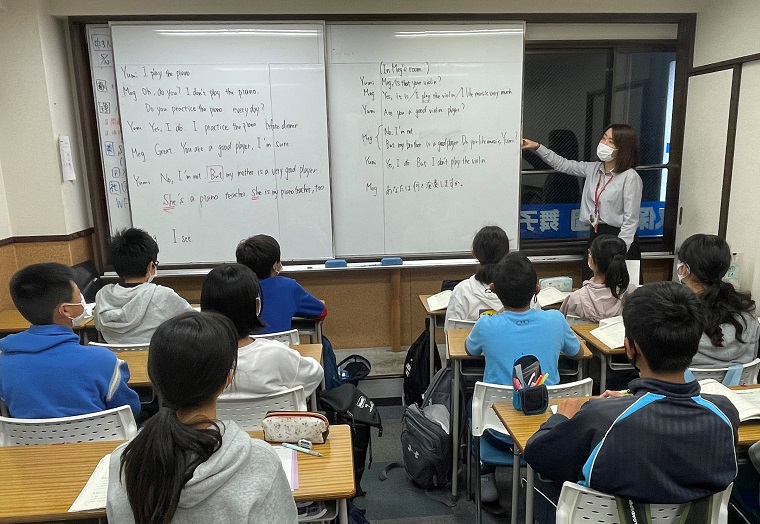 Yumi I play the piano
Meg Oh, do you? I don't play the piano.
Do you practice the piano every day?
Yumi Yes, I do. I practice the piano before dinner
Meg Great. You are a good player, I'm sure.
Yumi No, I'm not. But my mother is a very good player.
She is a piano teacher. She is my piano teacher, too.
I see.
(In Meg's room)
Yumi Meg, Is that your violin?
Meg Yes, it is. / I play the violin. / I like music very much.
Yumi Are you a good violin player?
Meg No, I'm not.
But my brother is a good player. Do you like music, Yumi?
Yumi Yes, I do. But I don't play the violin.
Meg あなたは何を演奏しますか。
舞子